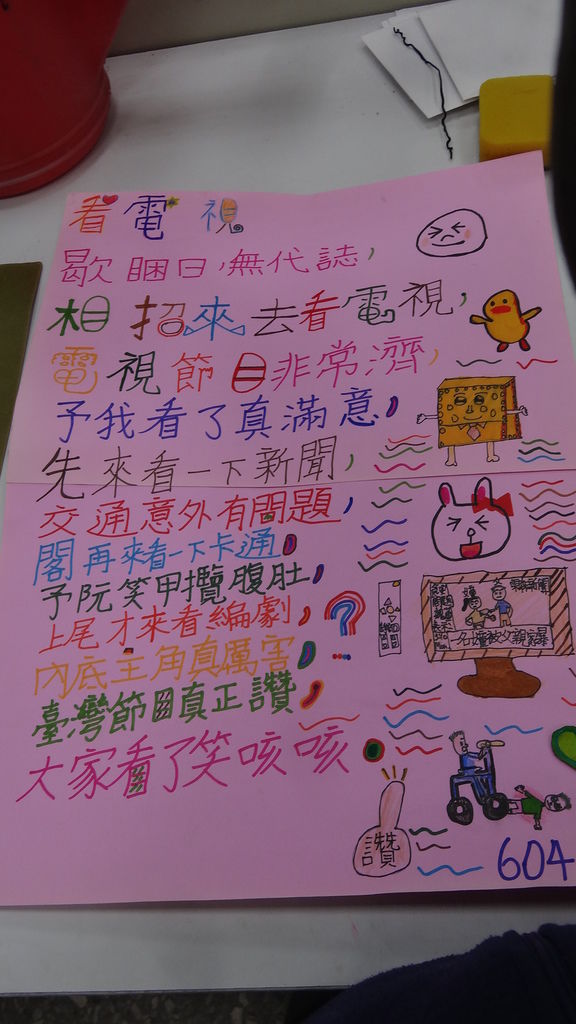 看電視
歇睏日,無代誌,
相招來去看電視,
電視節目非常濟,
予我看了真滿意,
先來看一下新聞,
交通意外有問題,
閣再來看一下卡通,
予阮笑甲攬腹肚,
上尾才來看編劇,
內底主角真厲害,
臺灣節目真正讚,
大家看了笑咳咳.
讚
604